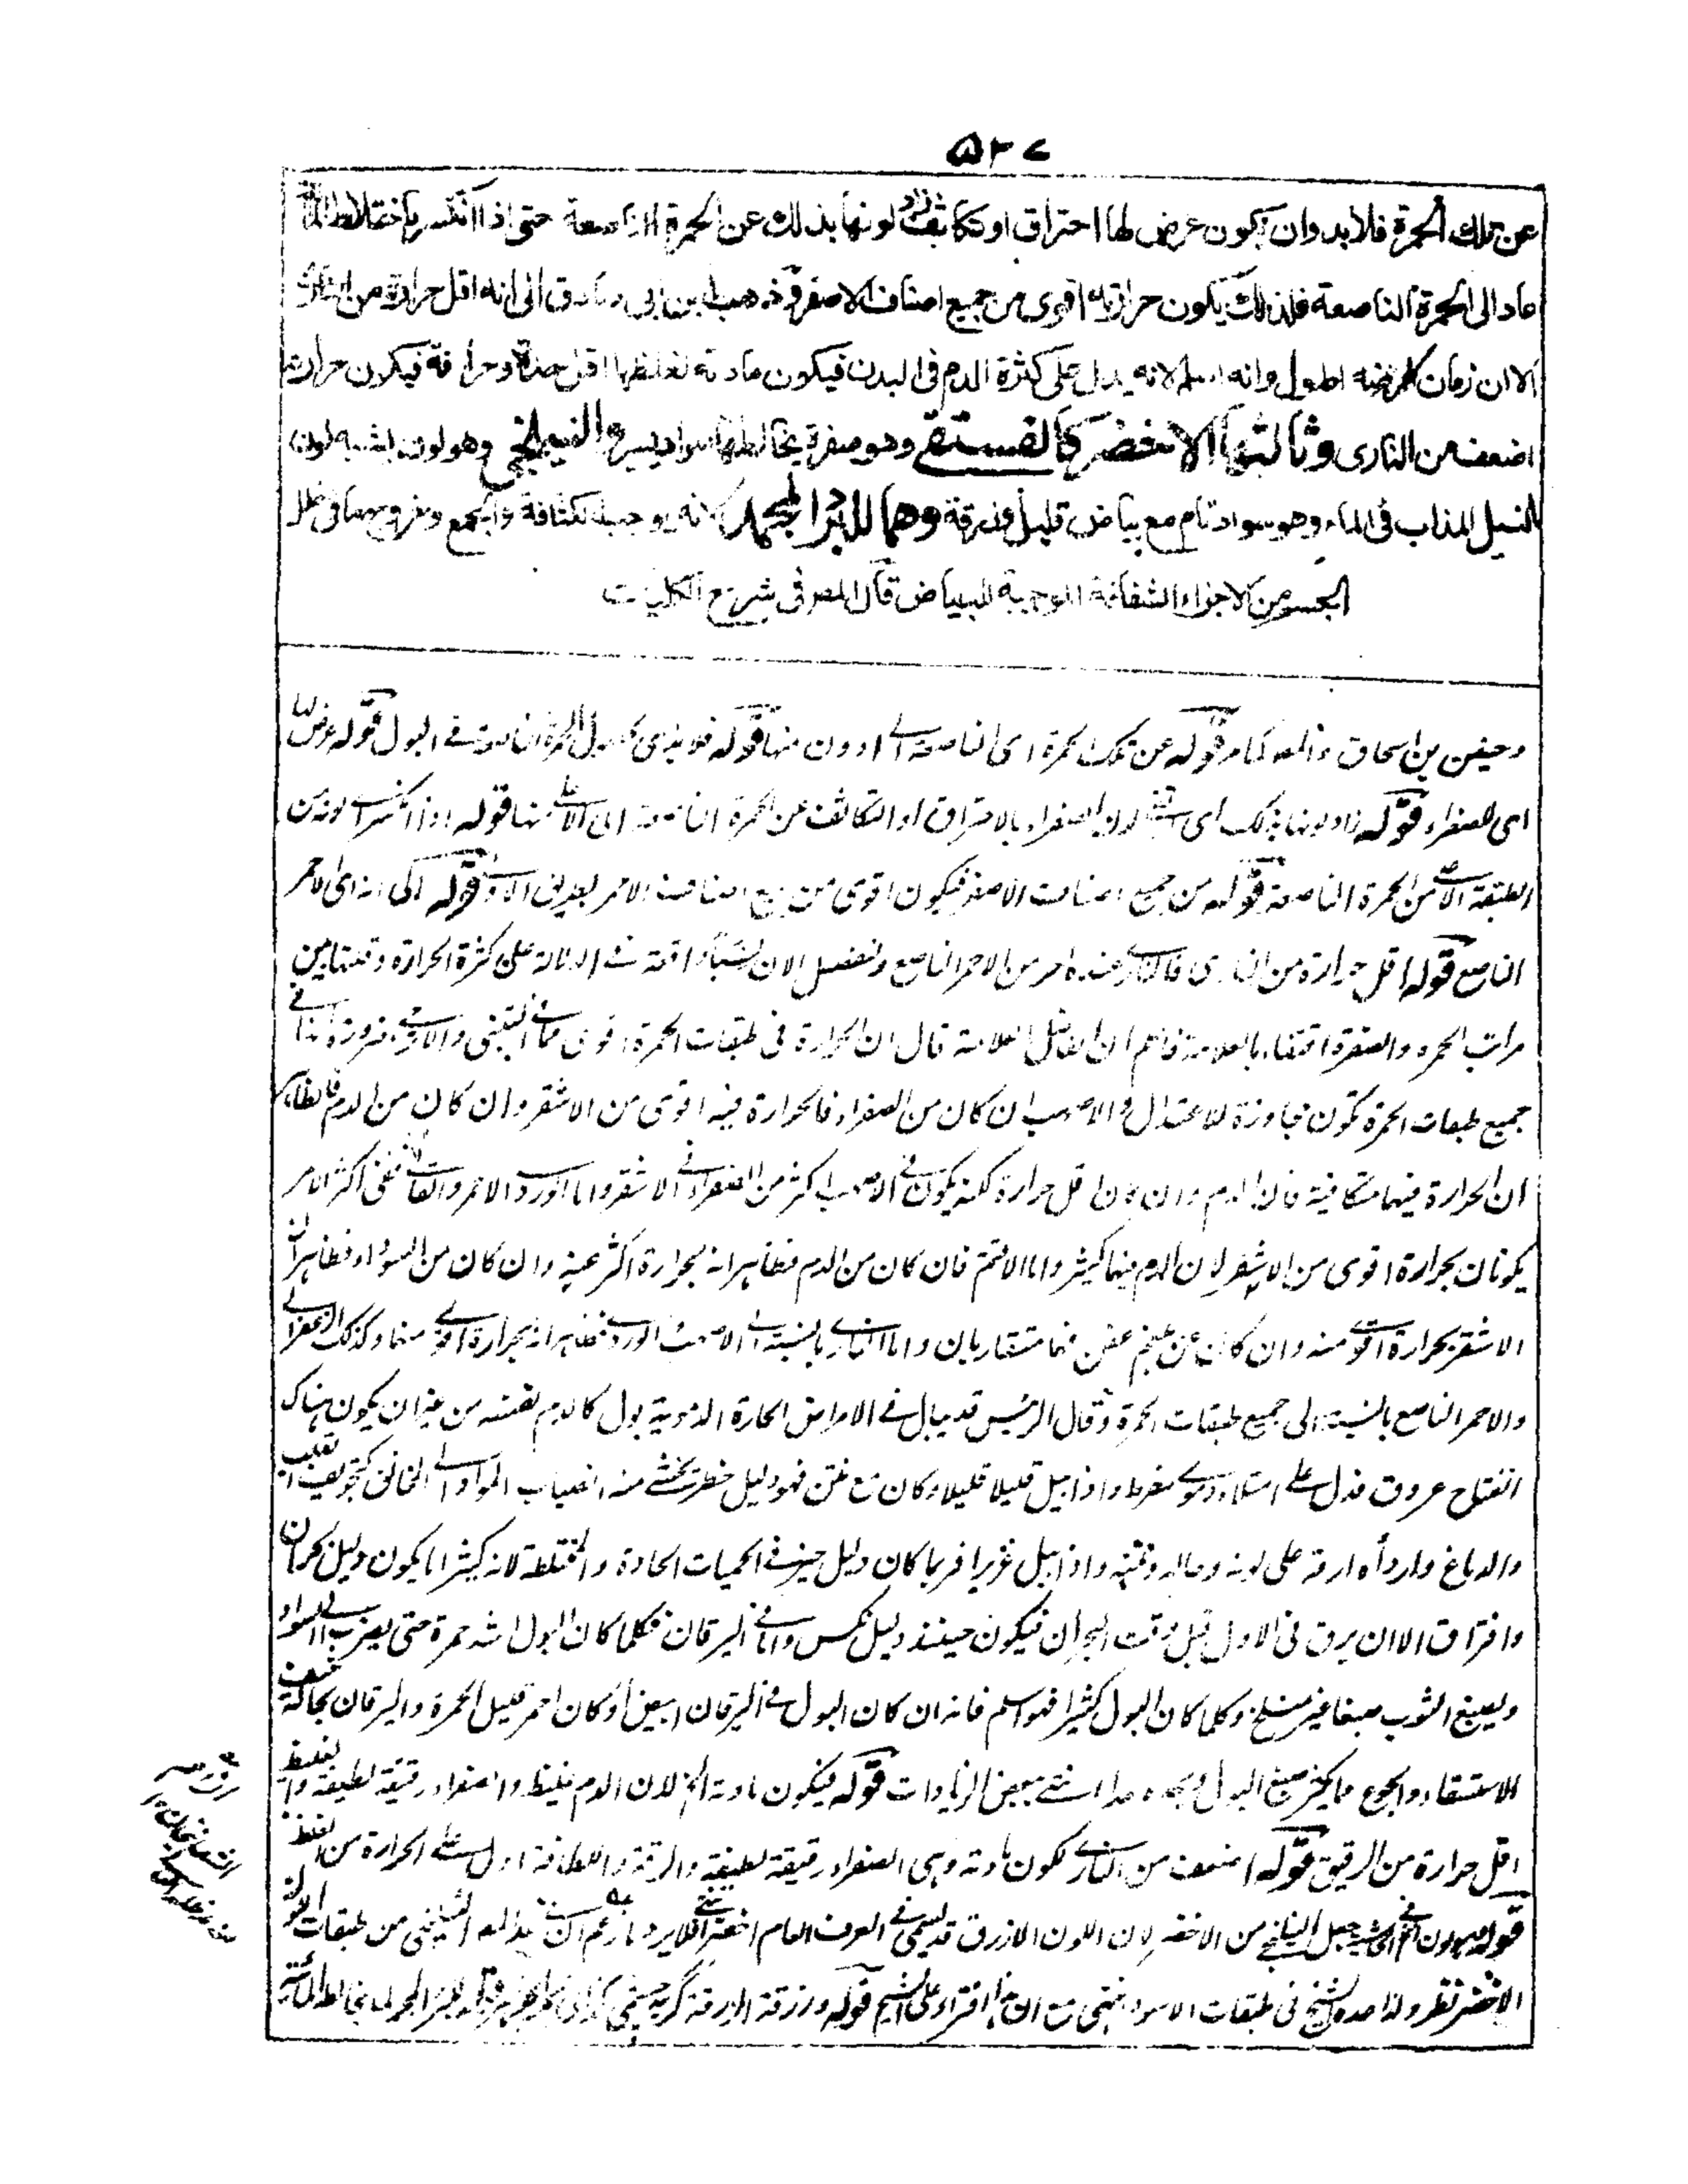 ٥٢٧
عن تلك الحمرة فلا بد وان يكون عرض لها احتراق او تكاثف زاد لونها بذلك عن الحمرة الناصعة حتى اذا انكسر باختلاط المائية
عاد الى الحمرة الناصعة فلذلك يكون حرارته اقوى من جميع اصناف الاصفر وذهب ابن ابى صادق الى انه اقل حرارة من النارى
الا ان زمان مرضه اطول وانه اسلم لانه يدل على كثرة الدم فى البدن فيكون مادته لغلظها اقل حدة وحرافة فيكون حرارته
اضعف من النارى وثالثها الاخضر كالفستقى وهو صفرة يخالطها سواد يسير والنيلنجى وهو لون يشبه لون
النيل المذاب فى الماء وهو سواد تام مع بياض قليل وزرقة وهما للبرد المجمد لانه يوجب الكثافة والجمع وخروج ما فى خلل
الجسم من الاجزاء الشفافة الموجبة للبياض قال المص فى شرح الكليات
وحنين بن اسحاق والمص كما مر قوله عن تلك الحمرة اى الناصعة الى ادون منها قوله فلا بد اى لحصول الحمرة الناصعة فے البول قوله عرض لها
اى للصفراء قوله زاد لونها بذلك اى لون الصفراء بالاحتراق او التكاثف عن الحمرة الناصعة الى الاعلى منها قوله اذا انكسر لونه من
الطبقة الاعلى من الحمرة الناصعة قوله من جميع اصناف الاصفر فيكون اقوى من جميع اصناف الاحمر بطريق الاولى قوله الى انه اى الاحمر
الناصع قوله اقل حرارة من النارى فالنارى عنده احر من الاحمر الناصع ولنفصل الان فے الدلالة على كثرة الحرارة وقلتها بين
مراتب الحمرة والصفرة اقتفاء بالعلامة فاعلم ان الفاضل العلامة قال ان الحرارة فى طبقات الحمرة اقوى مما فى التبنى والاترجى ضرورة ان
جميع طبقات الحمرة تكون مجاوزة للاعتدال والاصهب ان كان من الصفراء فالحرارة فيه اقوى من الاشقر وان كان من الدم فالظاهر
ان الحرارة فيهما متكافية فان الدم وان كان اقل حرارة لكنه يكون فى الاصهب اكثر من الصفراء فى الاشقر واما الوردى والاحمر والقانى ففى اكثر الامر
يكونان بحرارة اقوى من الاشقر لان الدم فيهما كثير واما الاقتم فان كان من الدم فظاهر انه بحرارة اكثر عنه وان كان من السوداء فظاهر ان
الاشقر بحرارة اقوى منه وان كان عن بلغم عفن فهما متقاربان واما النارى بالنسبة الى الاصهب والوردى فظاهر انه بحرارة اقوى منهما وكذلك الزعفرانى
والاحمر الناصع بالنسبة الى جميع طبقات الحمرة وقال الرئيس قد يبال فے الامراض الحارة الدموية بول كالدم نفسه من غير ان يكون هناك
انفتاح عروق فدل على امتلاء دموى مفرط واذا بيل قليلا قليلا وكان مع نتن فهو دليل خطر يخشى منه انصباب المواد الى الخانق كتجويف القلب
والدماغ واردأه ارقه على لونه وحاله ونتنه واذا بيل غزيرا فربما كان دليل خير فے الحميات الحادة والمختلطة لانه كثيرا ما يكون دليل بحران
وافراق الا ان يرق فى الاول قبل وقت البحران فيكون حينئذ دليل نكس واما فى اليرقان فكلما كان البول اشد حمرة حتى يضرب الى السواد
ويصبغ الثوب صبغا غير منسلخ وكلما كان البول كثيرا فهو اسلم فانه ان كان البول فے اليرقان ابيض او كان احمر قليل الحمرة واليرقان بحاله خيف
الاستسقاء والجوع مما يكثر صبغ البول ويحده جدا انتهى ببعض الزيادات قوله فيكون مادته الخ لان الدم غليظ والصفراء رقيقة لطيفة والغليظ
اقل حرارة من الرقيق قوله اضعف من النارى لكون مادته وهى الصفراء رقيقة لطيفة والرقة واللطافة ادل على الحرارة من الغلظ
قوله من الاخضر لان اللون الازرق قد يسمى فے العرف العام اخضر من طبقات
الاخضر نظر ولذا عده الشيخ فى طبقات الاسود انتهى مع ان هذا افتراء على الشيخ قوله وزرقة الزرقة